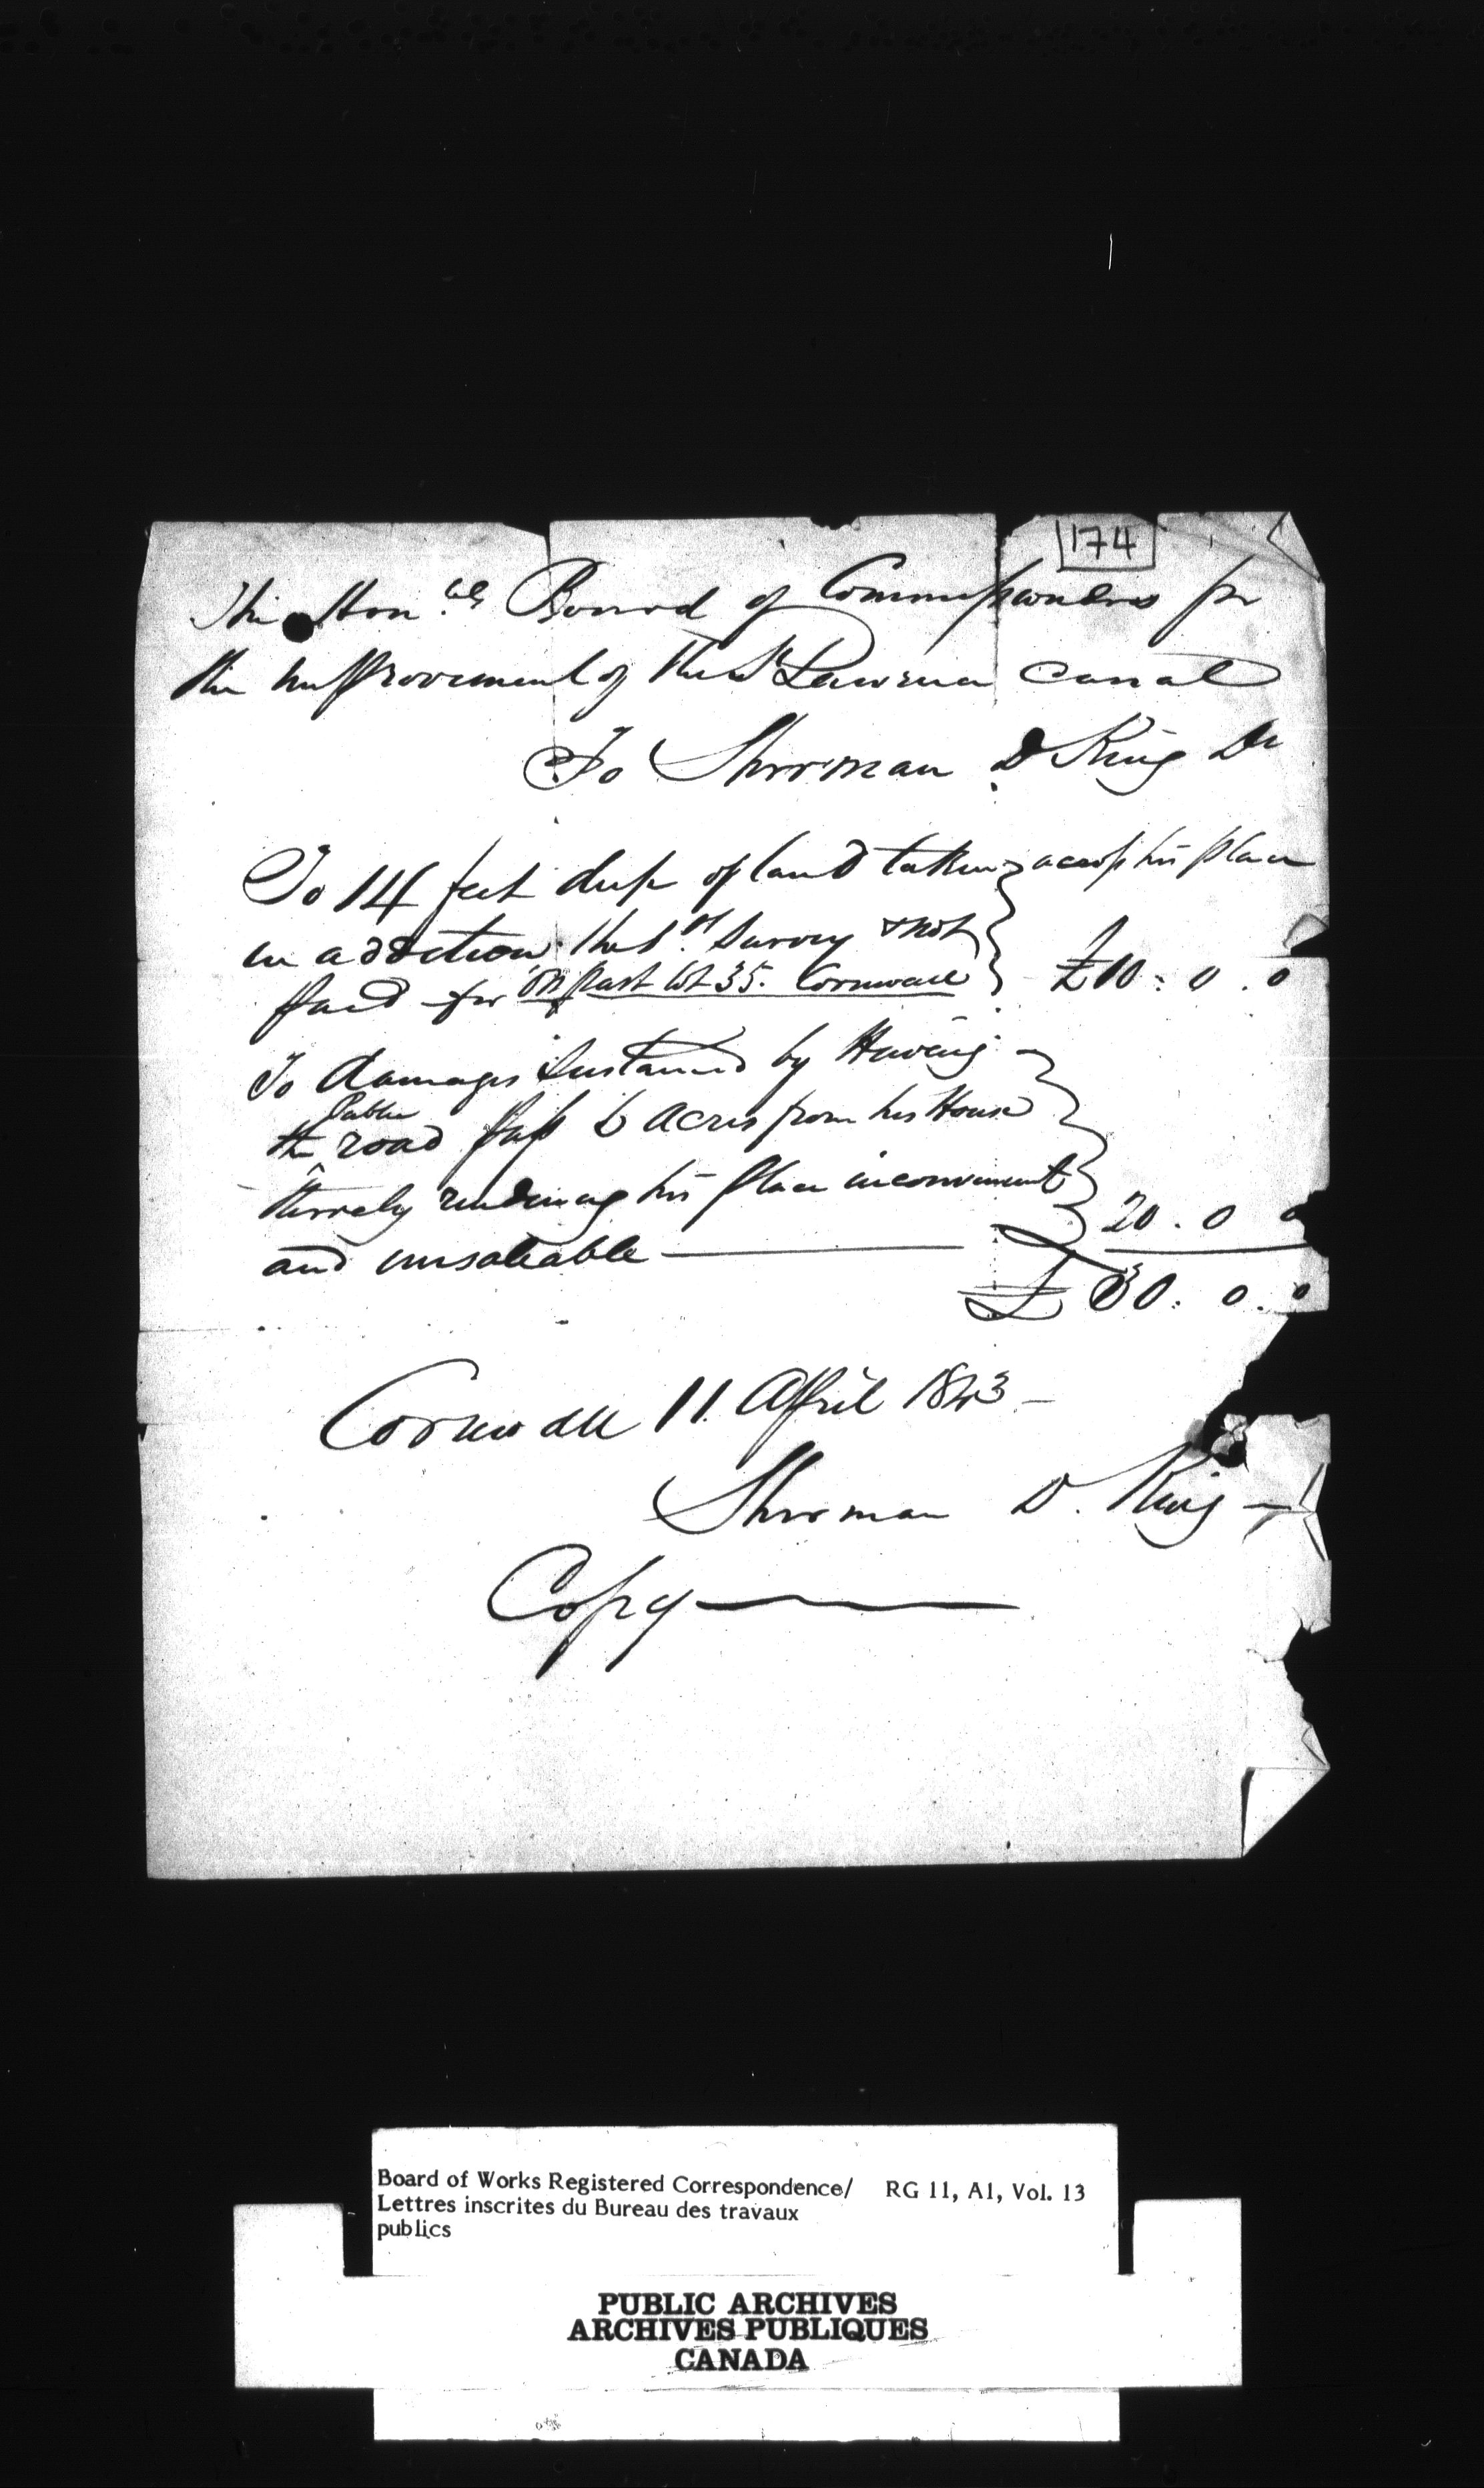 174
The Hon.ble Board of Commissioners for
the improvement of the St Lawrence Canal
To Shirman D King Dr
To 14 feet deep of land taken across his place
in addition the 1st Survey & not
paid for on part lot 35. Cornwall £10 : 0 . 0
To damages sustained by Having
the Public road pass 6 acres from his House
thereby rendering his place inconvenient
and unsaleable 20 . 0 0
£ 30 : 0 . 0
Cornwall 11. April 1843
Shirman D. King
Copy
Board of Works Registered Correspondence/ RG 11, A1, Vol. 13
Lettres inscrites du Bureau des travaux
publics
PUBLIC ARCHIVES
ARCHIVES PUBLIQUES
CANADA